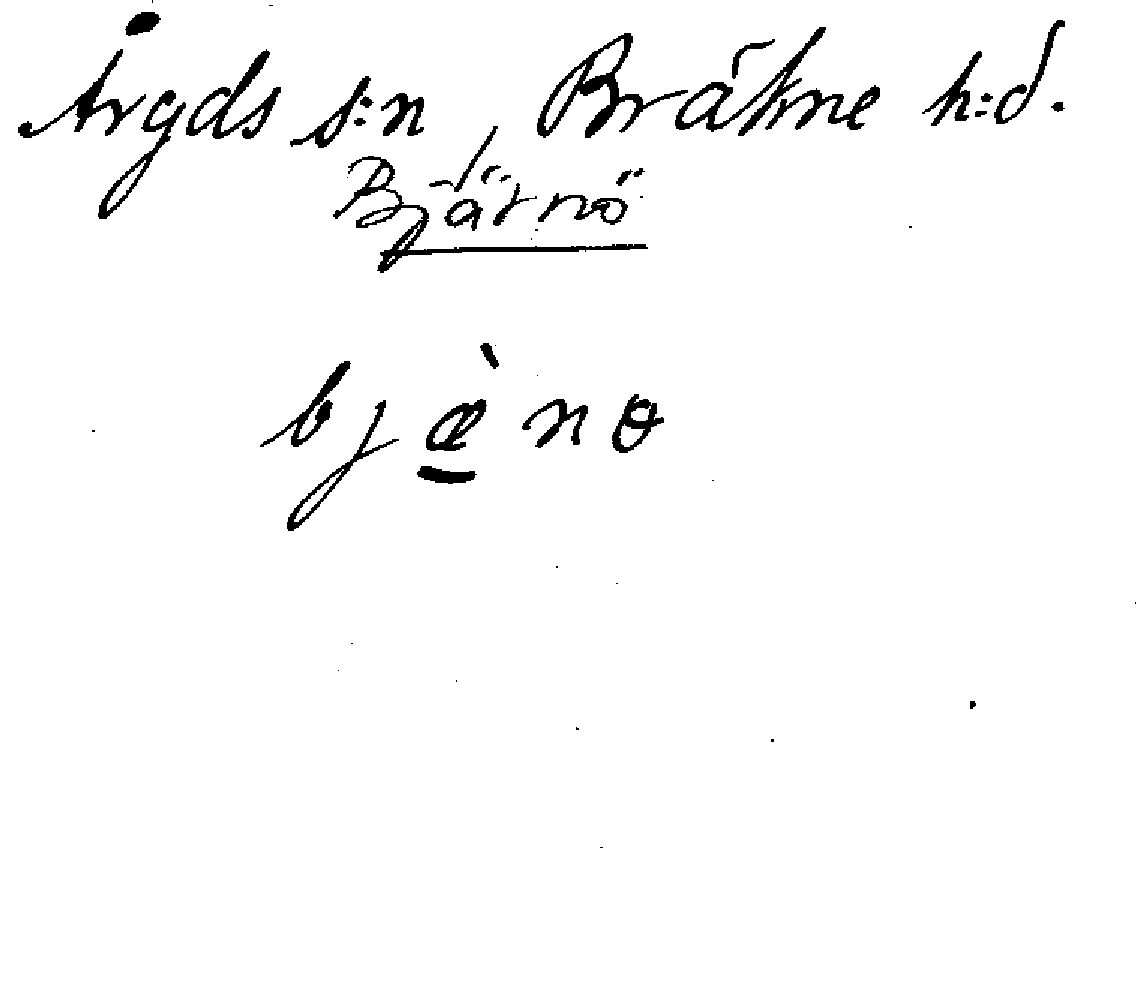 Åryds s:n, Bräkne h:d.
Bjärnö
bjæ̲̀nɵ